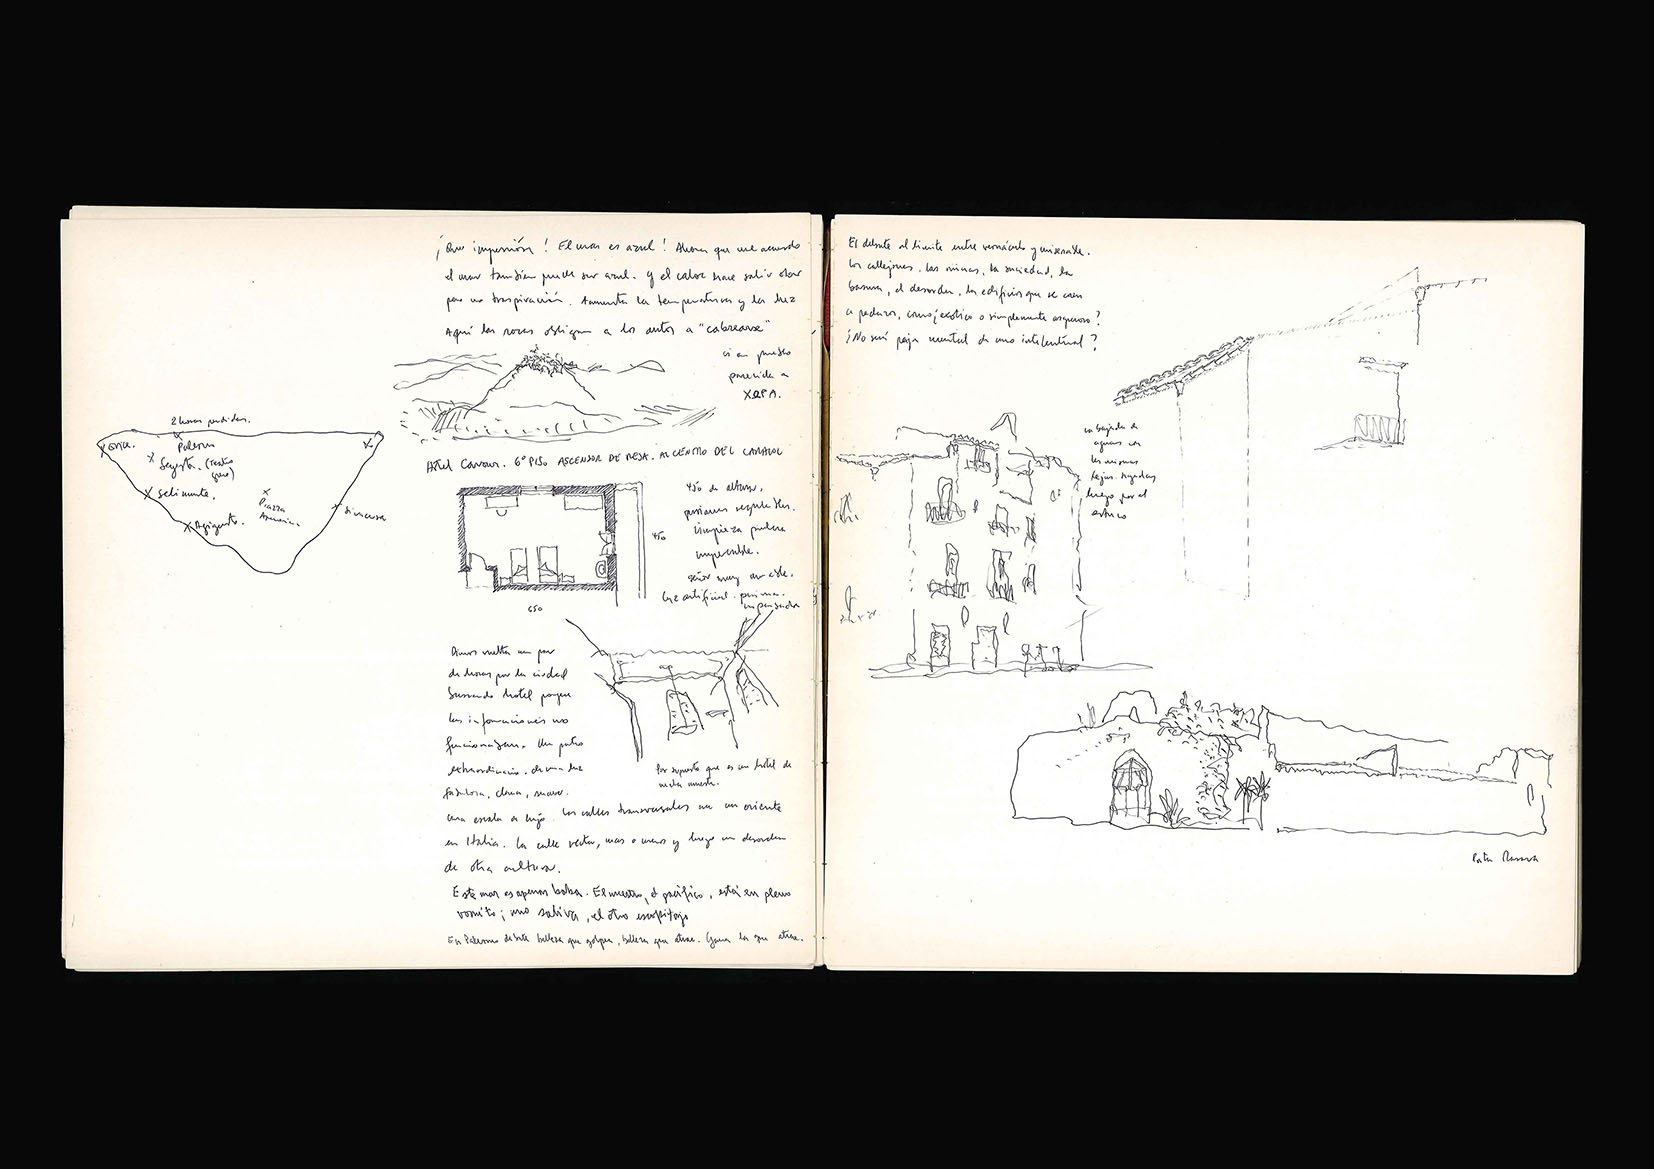 ¡Que impresión! El mar es azul! Ahora que me acuerdo
el mar también puede ser azul. y el calor hace salir olor
por la traspiración. Aumenta la temperatura y la luz
Aquí las rocas obligan a los autos a "cabrearse"
es un pueblo
parecido a
XORA.
2 horas perdidas.
Erice.
Palermo
Segesta. (Teatro
Selinunte.
Agrigento.
Piazza
Armerina.
Siracusa
Hotel Cavour. 6º PISO ASCENSOR DE MESA. AL CENTRO DEL
450 de altura,
persianas
limpieza
impecable.
señor muy amable.
luz artificial.
450
650
Dimos vuelta un par
de horas por la ciudad
buscando hotel porque
las informaciones no
funcionaban. Un patio
extraordinario. de una luz
fabulosa, clara, suave.
Por supuesto que es un hotel de
mala muerte.
una escala de lujo. Las calles transversales son un oriente
en Italia. La calle recta, mas o menos y luego un desorden
de otra cultura.
Este mar es apenas baba. El nuestro, el pacífico, está en pleno
vomito; uno saliva, el otro escupitajo
En Palermo debate belleza que golpea, belleza que atrae. Gana la que atrae.
El debate al límite entre vernáculo y miserable.
Los callejones, las ruinas, la suciedad, la
basura, el desorden, los edificios que se caen
a pedazos, como ¿exótico o simplemente asqueroso?
¿No será paja mental de uno intelectual?
la bajada de
aguas con
las mismas
tejas.
luego por el
estuco
Porta